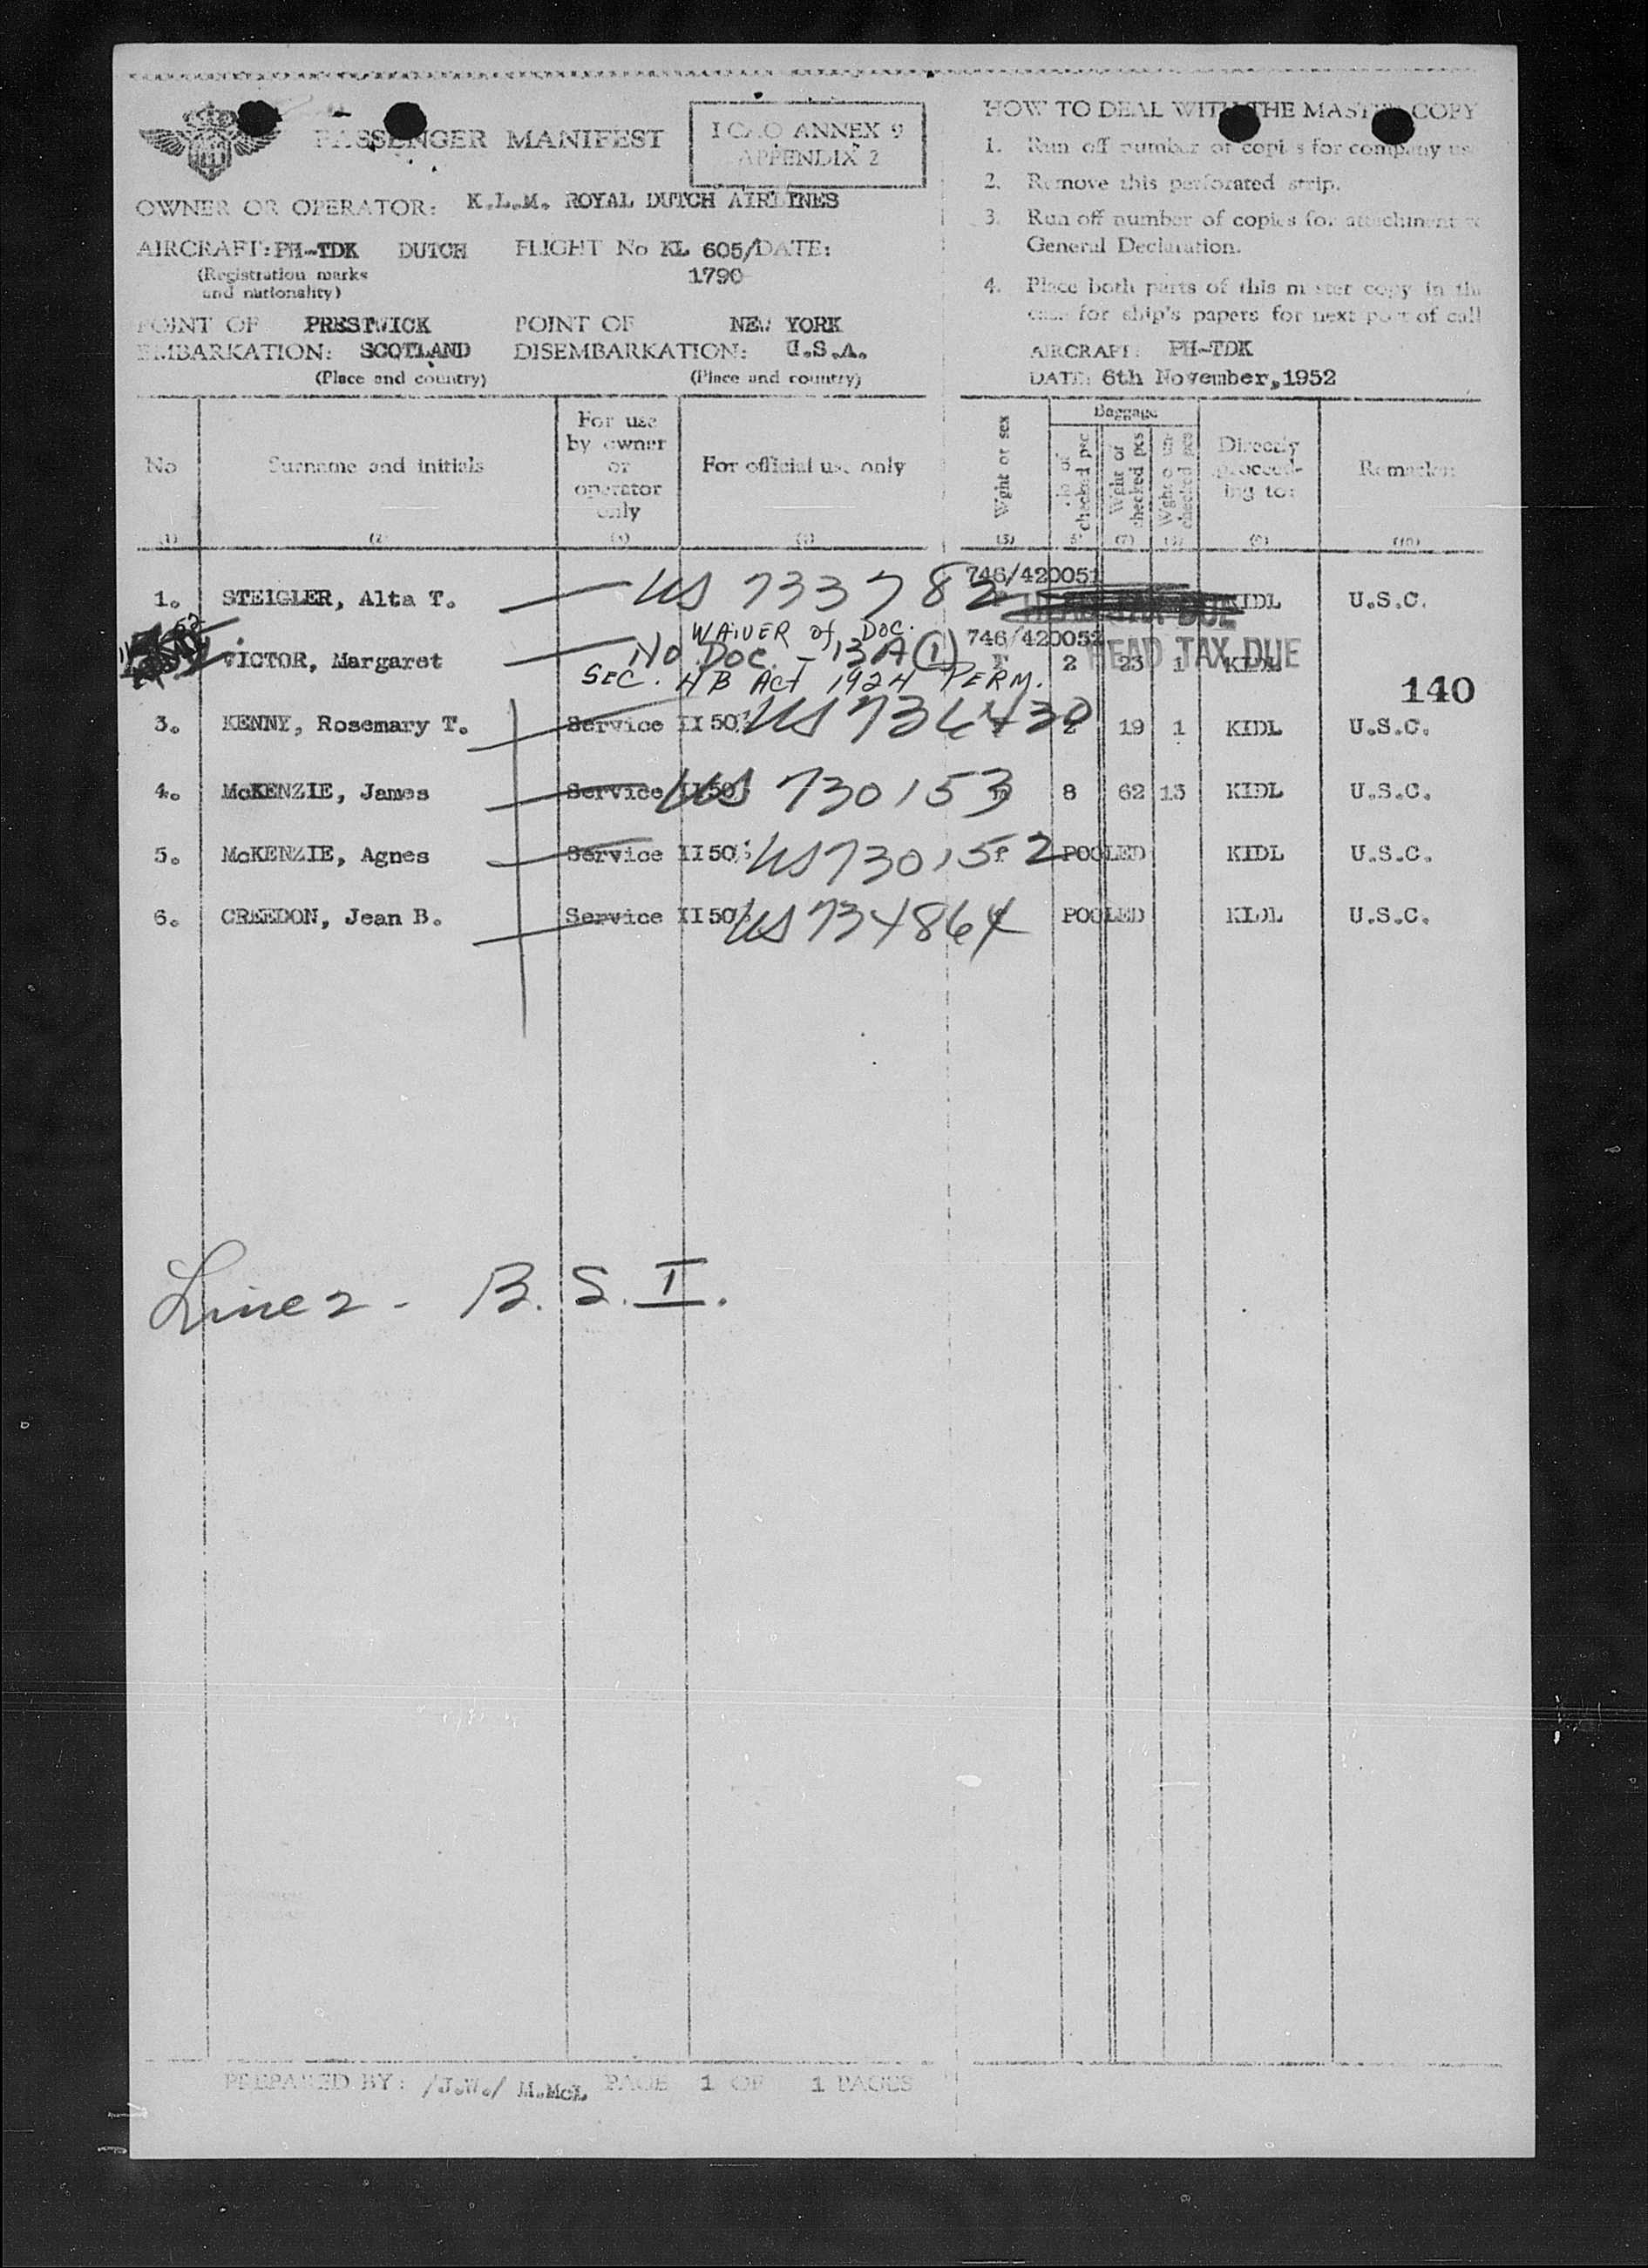 PASSENGER MANIFEST
ICAO ANNEX 9
APPENDIX 2
OWNER OR OPERATOR: K.L.M. ROYAL DUTCH AIRLINES
AIRCRAFT: PH-TDK DUTCH FLIGHT No KL 605/ DATE:
(Registration marks 1790
and nationality)
POINT OF PRESTWICK POINT OF NEW YORK
EMBARKATION: SCOTLAND DISEMBARKATION: U.S.A.
(Place and country) (Place and country)
HOW TO DEAL WITH THE MASTER COPY
1. Run off number of copies for company us
2. Remove this perforated strip.
3. Run off number of copies for attachment to
General Declaration.
4. Place both parts of this master copy in the
case for ship's papers for next port of call
AIRCRAFT: PH-TDK
DATE: 6th November, 1952
No Surname and initials For use by owner or operator only For official use only Wght or sex Baggage No of checked pcs Wght of checked pcs Wght o un-checked pcs Directly proceed-ing to: Remarks:
(1) (2) (3) (4) (5) (7) (9) (10)
746/420051
1. STEIGLER, Alta T. US 733782 HEAD TAX DUE KIDL U.S.C.
WAIVER of Doc. 746/420052
VICTOR, Margaret No Doc. - 13 A (1) F 2 23 1 KIDL HEAD TAX DUE
SEC. 4B Act 1924 PERM.
140
3. KENNY, Rosemary T. Service II 50 US 736430 2 19 1 KIDL U.S.C.
4. McKENZIE, James Service II 50 US 730153 8 62 13 KIDL U.S.C.
5. McKENZIE, Agnes Service II 50 US 730152 POOLED KIDL U.S.C.
6. CREEDON, Jean B. Service II 50 US 734864 POOLED KIDL U.S.C.
Line 2 - B.S.I.
PREPARED BY: /J.W./ M.McL PAGE 1 OF 1 PAGES